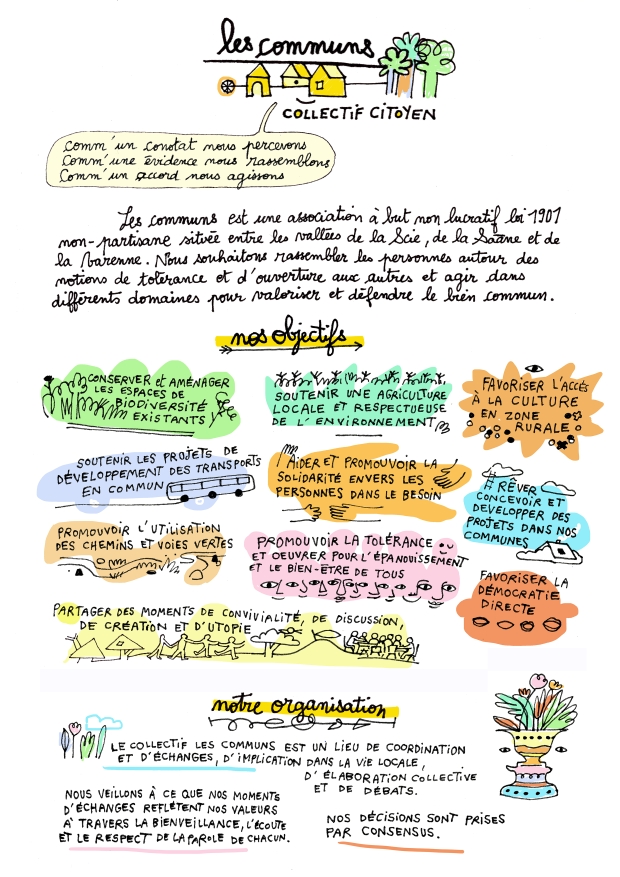 les communs
COLLECTIF CITOYEN
Comm'un constat nous percevons
Comm'une évidence nous rassemblons
Comm'un accord nous agissons
Les communs est une association à but non lucratif loi 1901
non-partisane située entre les vallées de la Scie, de la Saâne et de
la Varenne. Nous souhaitons rassembler les personnes autour des
notions de tolérance et d'ouverture aux autres et agir dans
différents domaines pour valoriser et défendre le bien commun.
nos objectifs
CONSERVER et AMÉNAGER
LES ESPACES DE
BIODIVERSITÉ
EXISTANTS
SOUTENIR UNE AGRICULTURE
LOCALE ET RESPECTUEUSE
DE L'ENVIRONNEMENT
FAVORISER L'ACCÈS
À LA CULTURE
EN ZONE
RURALE
SOUTENIR LES PROJETS DE
DÉVELOPPEMENT DES TRANSPORTS
EN COMMUN
AIDER ET PROMOUVOIR LA
SOLIDARITÉ ENVERS LES
PERSONNES DANS LE BESOIN
# RÊVER
CONCEVOIR ET
DEVELOPPER DES
PROJETS DANS NOS
COMMUNES
PROMOUVOIR L'UTILISATION
DES CHEMINS ET VOIES VERTES
PROMOUVOIR LA TOLÉRANCE
ET OEUVRER POUR L'ÉPANOUISSEMENT
ET LE BIEN-ÊTRE DE TOUS
FAVORISER LA
DÉMOCRATIE
DIRECTE
PARTAGER DES MOMENTS DE CONVIVIALITÉ, DE DISCUSSION,
DE CRÉATION ET D'UTOPIE
notre organisation
LE COLLECTIF LES COMMUNS EST UN LIEU DE COORDINATION
ET D'ÉCHANGES, D'IMPLICATION DANS LA VIE LOCALE,
D'ÉLABORATION COLLECTIVE
ET DE DÉBATS.
NOUS VEILLONS À CE QUE NOS MOMENTS
D'ÉCHANGES REFLÈTENT NOS VALEURS
À TRAVERS LA BIENVEILLANCE, L'ÉCOUTE
ET LE RESPECT DE LA PAROLE DE CHACUN.
NOS DÉCISIONS SONT PRISES
PAR CONSENSUS.